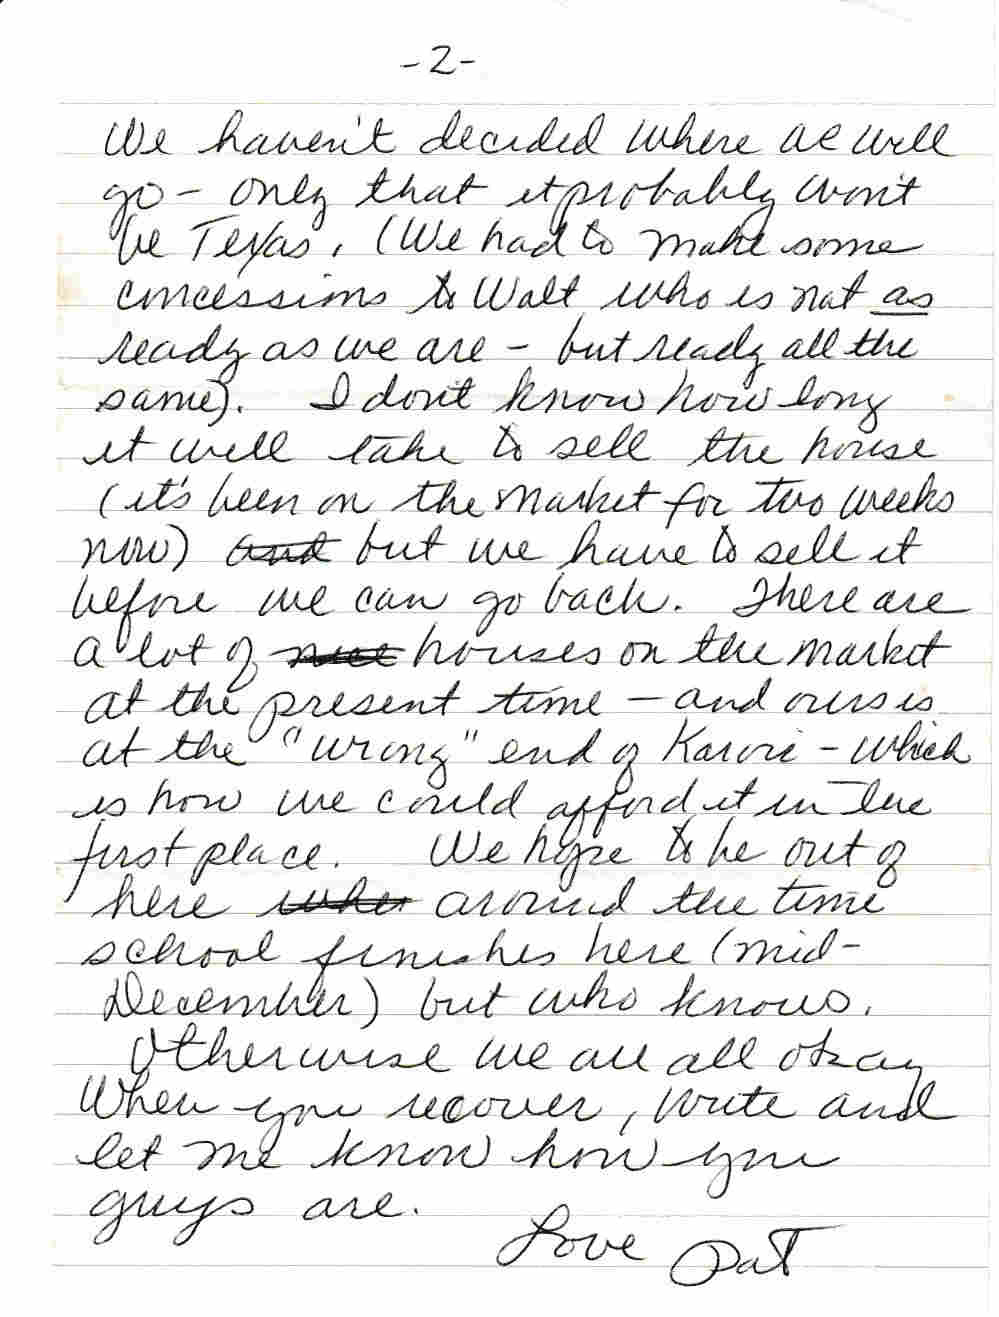 -2-
We haven't decided where we will
go - only that it probably won't
be Texas. (We had to make some
concessions to Walt who is not as
ready as we are - but ready all the
same). I don't know how long
it will take to sell the house
(it's been on the market for two weeks
now) and but we have to sell it
before we can go back. There are
a lot of nice houses on the market
at the present time - and ours is
at the "wrong" end of Karori - which
is how we could afford it in the
first place. We hope to be out of
here when around the time
school finishes here (mid-
December) but who knows.
Otherwise we are all okay
When you recover, write and
let me know how you
guys are.
Love Pat